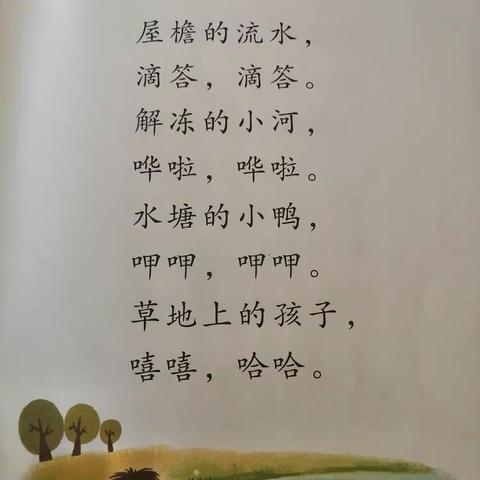 屋檐的流水，
滴答，滴答。
解冻的小河，
哗啦，哗啦。
水塘的小鸭，
呷呷，呷呷。
草地上的孩子，
嘻嘻，哈哈。